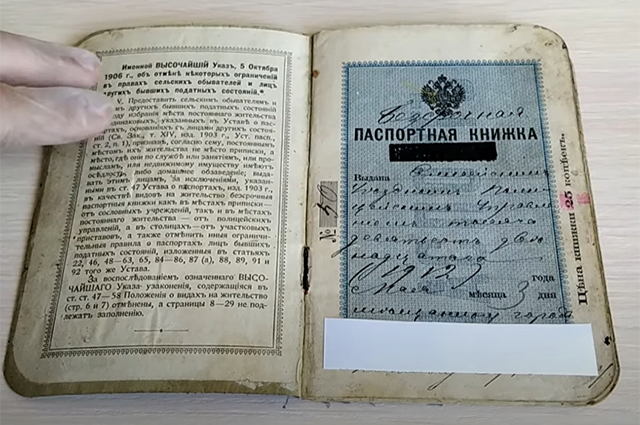 Именной ВЫСОЧАЙШІЙ Указ, 5 Октября
1906 г., объ отмѣнѣ нѣкоторыхъ ограниченій
въ правахъ сельскихъ обывателей и лицъ
другихъ бывшихъ податныхъ состояній.*
V. Предоставить сельскимъ обывателямъ и
другихъ бывшихъ податныхъ состояній
избранія мѣста постояннаго жительства
одинаковыхъ, указанныхъ въ Уставѣ о па-
спортахъ, основаніяхъ съ лицами другихъ состоя-
ній (Св. Зак., т. XIV, изд. 1903 г., Уст. пасп.,
ст. 2, п. 1), признавъ, согласно сему, постояннымъ
мѣстомъ ихъ жительства не мѣсто приписки, а
мѣсто, гдѣ они по службѣ или занятіямъ, или про-
мысламъ, или недвижимому имуществу имѣютъ
осѣдлость, либо домашнее обзаведеніе; выда-
вать этимъ лицамъ, за исключеніями, указан-
ными въ ст. 47 Устава о паспортахъ, изд. 1903 г.,
въ качествѣ видовъ на жительство безсрочныя
паспортныя книжки какъ въ мѣстахъ приписки—
отъ сословныхъ учрежденій, такъ и въ мѣстахъ
постояннаго жительства — отъ полицейскихъ
управленій, а въ столицахъ—отъ участковыхъ
приставовъ, а также отмѣнить иныя ограничи-
тельныя правила о паспортахъ лицъ бывшихъ
податныхъ состояній, изложенныя въ статьяхъ
22, 46, 48—63, 65, 84—86, 87 (а), 88, 89, 91 и
92 того же Устава.
За воспослѣдованіемъ означеннаго ВЫСО-
ЧАЙШАГО Указа узаконенія, содержащіяся въ
ст. ст. 47—58 Положенія о видахъ на жительство
(стр. 6 и 7) отмѣнены, а страницы 8—29 не под-
лежатъ заполненію.
Безсрочная
ПАСПОРТНАЯ КНИЖКА
Выдана
№ 50
тысяча
девятьсотъ двѣ
надцатаго
(1912) года
Мая мѣсяца 3 дня
мѣщанину города
Цѣна книжки 25 копѣекъ.